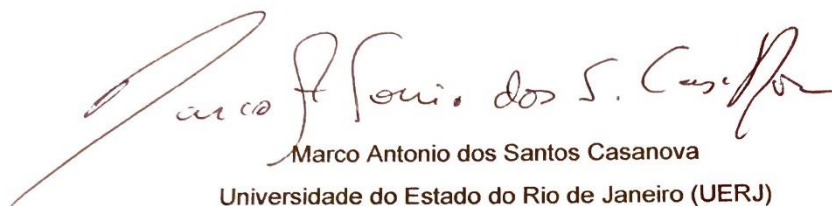 Marco Antonio dos S. Casanova
Marco Antonio dos Santos Casanova
Universidade do Estado do Rio de Janeiro (UERJ)